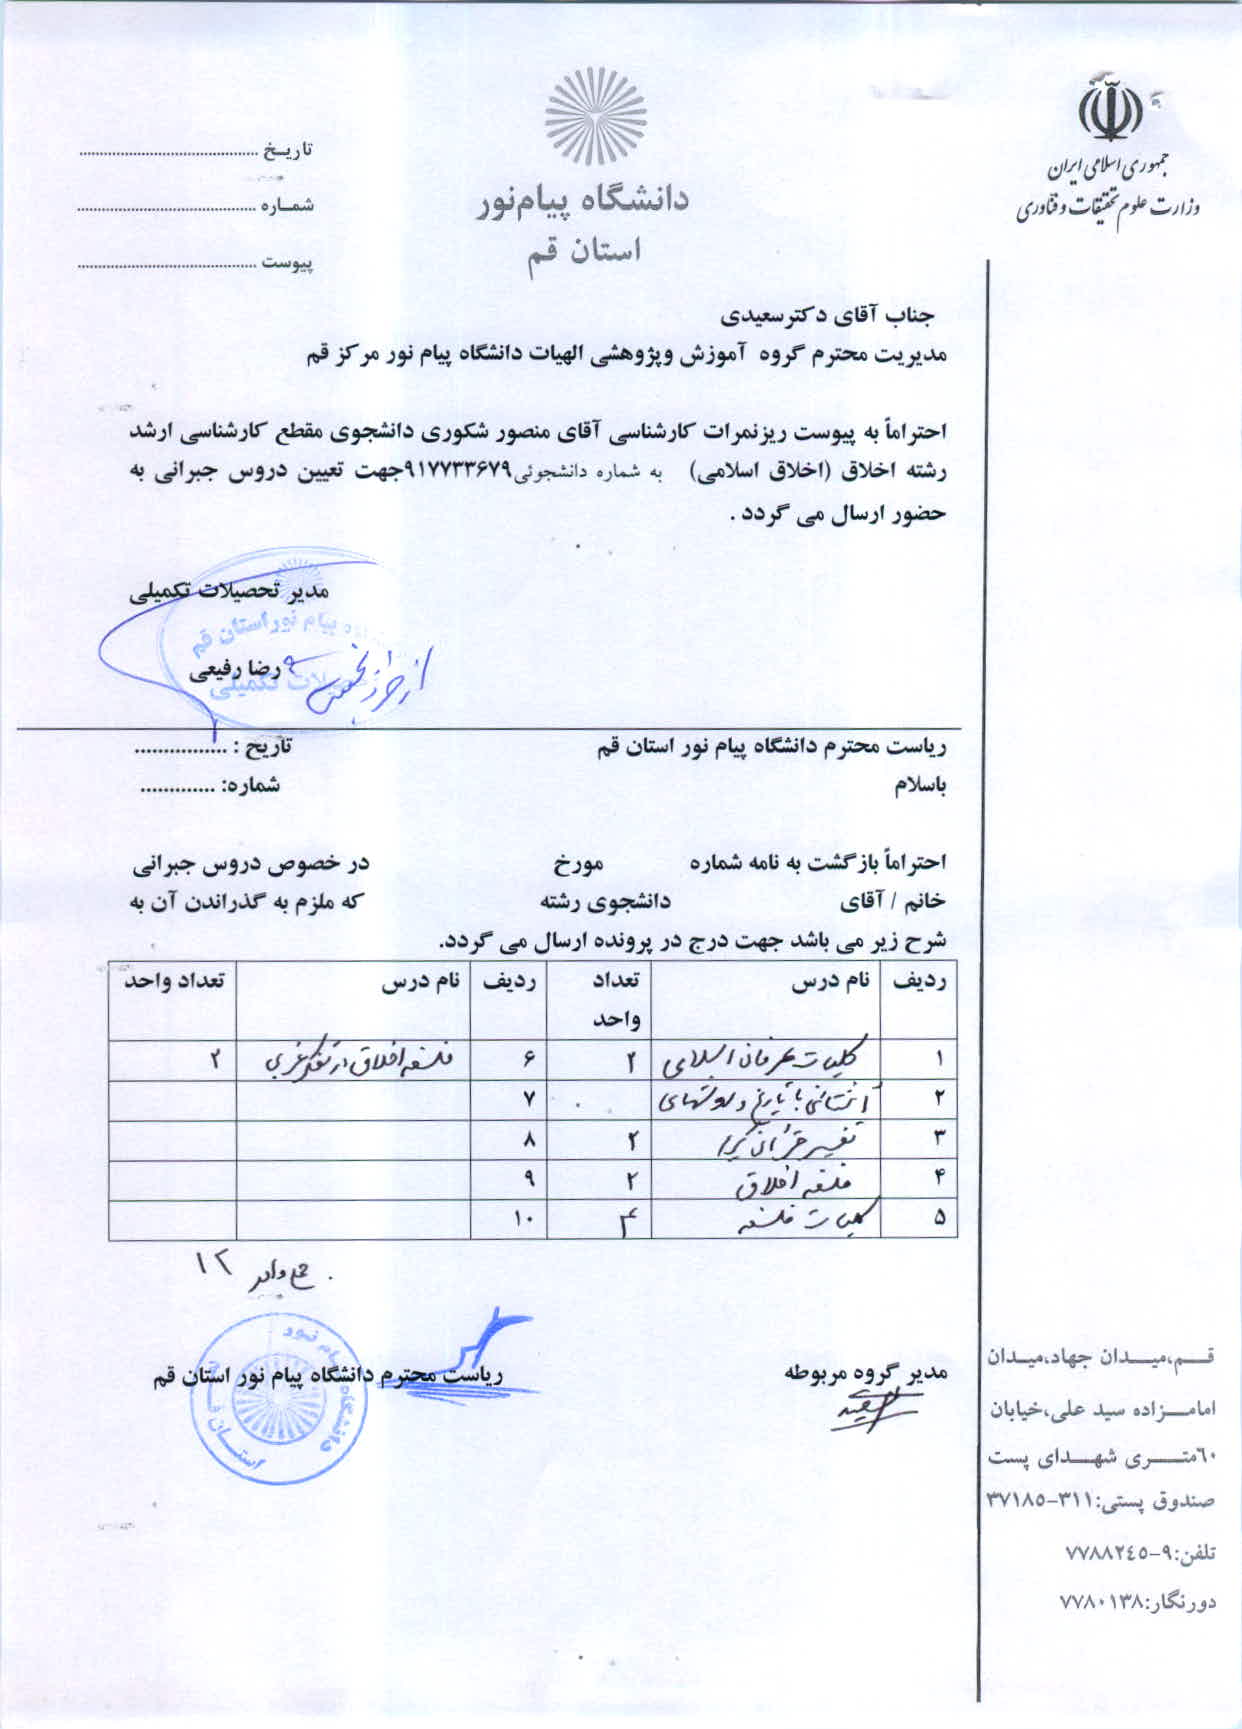 جمهوری اسلامی ایران
وزارت علوم تحقیقات و فناوری
دانشگاه پیام‌نور
استان قم
تاریـخ ......................................
شمـاره ......................................
پیوست ......................................
جناب آقای دکترسعیدی
مدیریت محترم گروه آموزش وپژوهشی الهیات دانشگاه پیام نور مرکز قم
احتراماً به پیوست ریزنمرات کارشناسی آقای منصور شکوری دانشجوی مقطع کارشناسی ارشد
رشته اخلاق (اخلاق اسلامی) به شماره دانشجوئی۹۱۷۷۳۳۶۷۹جهت تعیین دروس جبرانی به
حضور ارسال می گردد .
مدیر تحصیلات تکمیلی
پیام نوراستان قم
رضا رفیعی
تکمیلی
ریاست محترم دانشگاه پیام نور استان قم تاریخ : ................
باسلام شماره: .............
احتراماً بازگشت به نامه شماره مورخ در خصوص دروس جبرانی
خانم / آقای دانشجوی رشته که ملزم به گذراندن آن به
شرح زیر می باشد جهت درج در پرونده ارسال می گردد.
ردیف نام درس تعداد واحد ردیف نام درس تعداد واحد
۱ کلیات عرفان اسلامی ۲ ۶ فلسفه اخلاق در تفکر غربی ۲
۲ آشنائی با تاریخ و روشهای ۷
۳ تفسیر قرآن کریم ۲ ۸
۴ فلسفه اخلاق ۲ ۹
۵ کلیات فلسفه ۴ ۱۰
جمع واحد ۱۲
مدیر گروه مربوطه ریاست محترم دانشگاه پیام نور استان قم
دانشگاه پیام نور
استان قم
قـــم،میـــدان جهاد،میـدان
امامـــزاده سید علی،خیابان
۶۰متـــری شهـــدای پست
صندوق پستی:۳۱۱-۳۷۱۸۵
تلفن:۹-۷۷۸۸۲۴۵
دورنگار:۷۷۸۰۱۳۸